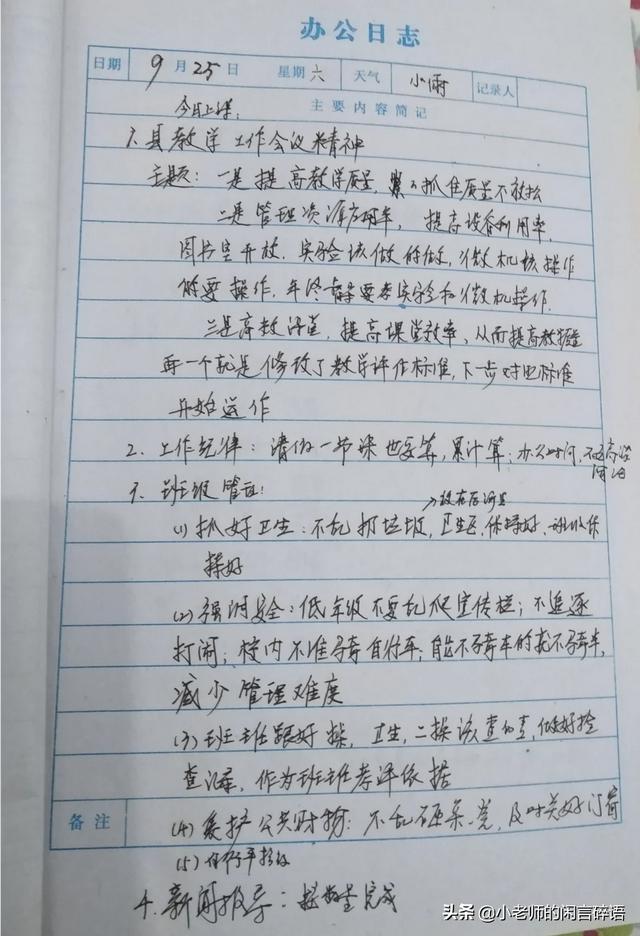 办公日志
日期 9月25日 星期六 天气 小雨 记录人
今日上课: 主要内容简记
1. 县教学工作会议精神
主题: 一是提高教学质量, 抓住质量不放松
二是管理资源应用率, 提高设备利用率,
图书室开放, 实验该做的做, 微机该操作
的要操作, 年终要考实验和微机操作.
三是高效课堂, 提高课堂效率, 从而提高教
再一个就是修改了教学评估标准, 下一步对照标准
开始运作
2. 工作纪律: 请假一节课也要算, 累计算; 办公时间, 不
3. 班级管理:
(1) 抓好卫生: 不乱扔垃圾, 卫生区保持好, 保
持好
(2) 强调安全: 低年级不要乱爬宣传栏; 不追逐
打闹; 校内不准骑自行车; 能不骑车的就不骑车,
减少管理难度
(3) 班主任跟好操, 卫生, 二操该查的查, 做好检
查记录, 作为班主任考评依据
备注
(4) 爱护公共财物: 不乱砸桌凳, 及时关好门窗
(5)
4. 新闻报导: 按数量完成
头条 @小老师的闲言碎语